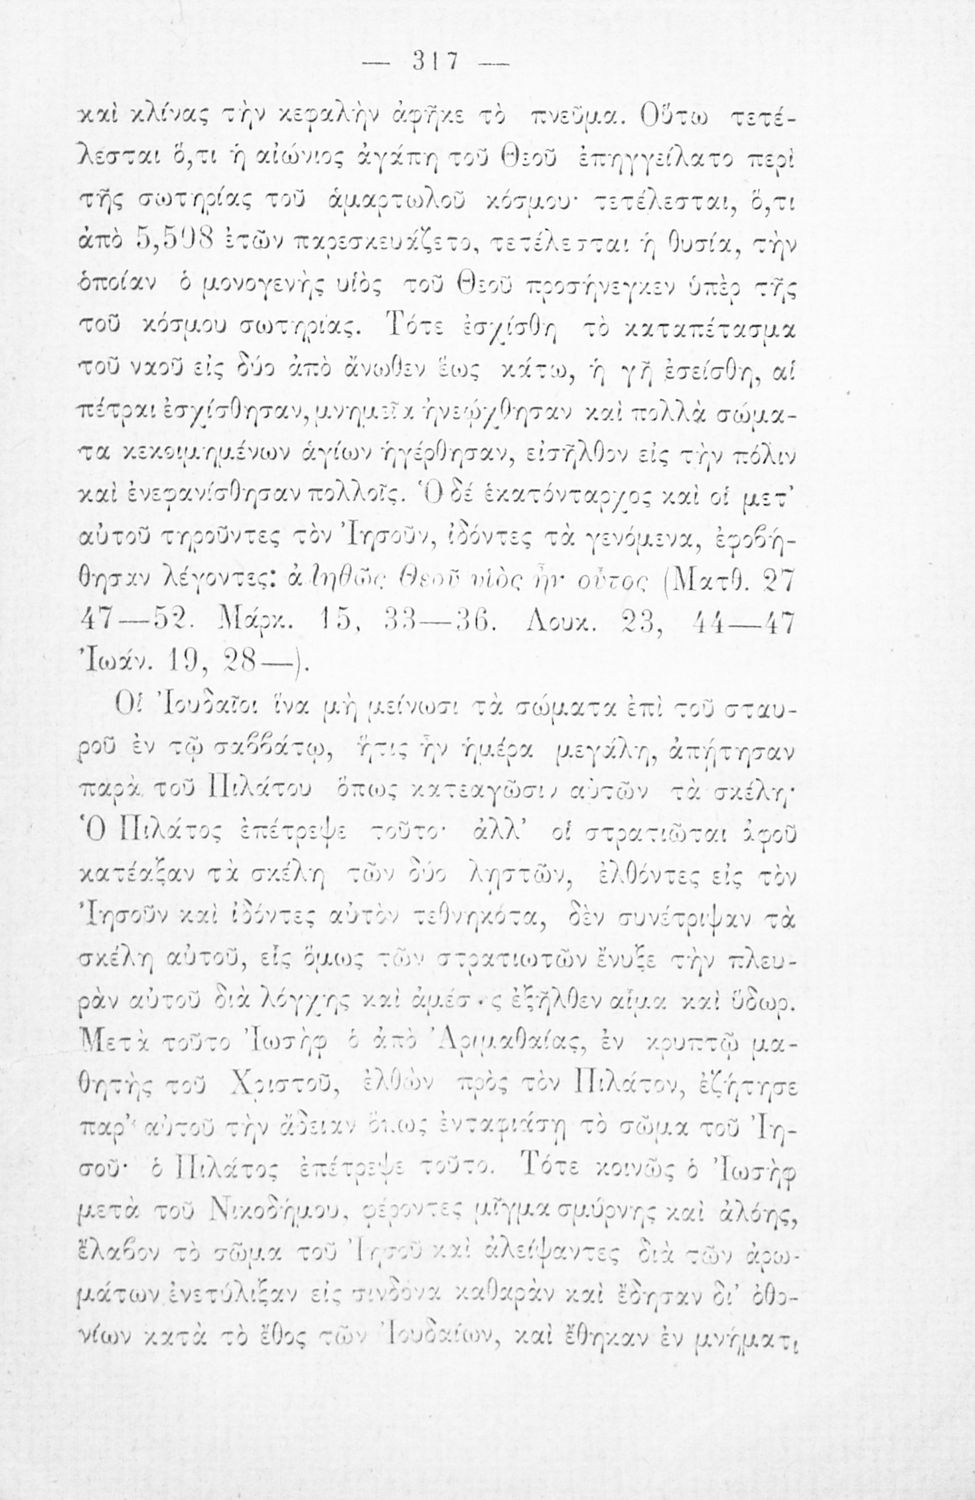 — 317 —
καὶ κλίνας τὴν κεφαλὴν ἀφῆκε τὸ πνεῦμα. Οὕτω τετέ-
λεσται ὅ,τι ἡ αἰώνιος ἀγάπη τοῦ Θεοῦ ἐπηγγείλατο περὶ
τῆς σωτηρίας τοῦ ἁμαρτωλοῦ κόσμου· τετέλεσται, ὅ,τι
ἀπὸ 5,508 ἐτῶν παρεσκευάζετο, τετέλεσται ἡ θυσία, τὴν
ὁποίαν ὁ μονογενὴς υἱὸς τοῦ Θεοῦ προσήνεγκεν ὑπὲρ τῆς
τοῦ κόσμου σωτηρίας. Τότε ἐσχίσθη τὸ καταπέτασμα
τοῦ ναοῦ εἰς δύο ἀπὸ ἄνωθεν ἕως κάτω, ἡ γῆ ἐσείσθη, αἱ
πέτραι ἐσχίσθησαν, μνημεῖα ἠνεῴχθησαν καὶ πολλὰ σώμα-
τα κεκοιμημένων ἁγίων ἠγέρθησαν, εἰσῆλθον εἰς τὴν πόλιν
καὶ ἐνεφανίσθησαν πολλοῖς. Ὁ δέ ἑκατόνταρχος καὶ οἱ μετ'
αὐτοῦ τηροῦντες τὸν Ἰησοῦν, ἰδόντες τὰ γενόμενα, ἐφοβή-
θησαν λέγοντες: ἀληθῶς Θεοῦ υἱὸς ἦν οὗτος (Ματθ. 27
47—52. Μάρκ. 15, 33—36. Λουκ. 23, 44—47
Ἰωάν. 19, 28—).
Οἱ Ἰουδαῖοι ἵνα μὴ μείνωσι τὰ σώματα ἐπὶ τοῦ σταυ-
ροῦ ἐν τῷ σαββάτῳ, ἥτις ἦν ἡμέρα μεγάλη, ἀπῄτησαν
παρὰ τοῦ Πιλάτου ὅπως κατεαγῶσιν αὐτῶν τὰ σκέλη·
Ὁ Πιλάτος ἐπέτρεψε τοῦτο· ἀλλ' οἱ στρατιῶται ἀφοῦ
κατέαξαν τὰ σκέλη τῶν δύο λῃστῶν, ἐλθόντες εἰς τὸν
Ἰησοῦν καὶ ἰδόντες αὐτὸν τεθνηκότα, δὲν συνέτριψαν τὰ
σκέλη αὐτοῦ, εἷς ὅμως τῶν στρατιωτῶν ἔνυξε τὴν πλευ-
ρὰν αὐτοῦ διὰ λόγχης καὶ ἀμέσως ἐξῆλθεν αἷμα καὶ ὕδωρ.
Μετὰ τοῦτο Ἰωσὴφ ὁ ἀπὸ Ἀριμαθαίας, ἐν κρυπτῷ μα-
θητὴς τοῦ Χριστοῦ, ἐλθὼν πρὸς τὸν Πιλάτον, ἐζήτησε
παρ' αὐτοῦ τὴν ἄδειαν ὅπως ἐνταφιάσῃ τὸ σῶμα τοῦ Ἰη-
σοῦ· ὁ Πιλάτος ἐπέτρεψε τοῦτο. Τότε κοινῶς ὁ Ἰωσὴφ
μετὰ τοῦ Νικοδήμου, φέροντες μῖγμα σμύρνης καὶ ἀλόης,
ἔλαβον τὸ σῶμα τοῦ Ἰησοῦ καὶ ἀλείψαντες διὰ τῶν ἀρω-
μάτων ἐνετύλιξαν εἰς σινδόνα καθαρὰν καὶ ἔδησαν δι' ὀθο-
νίων κατὰ τὸ ἔθος τῶν Ἰουδαίων, καὶ ἔθηκαν ἐν μνήματι